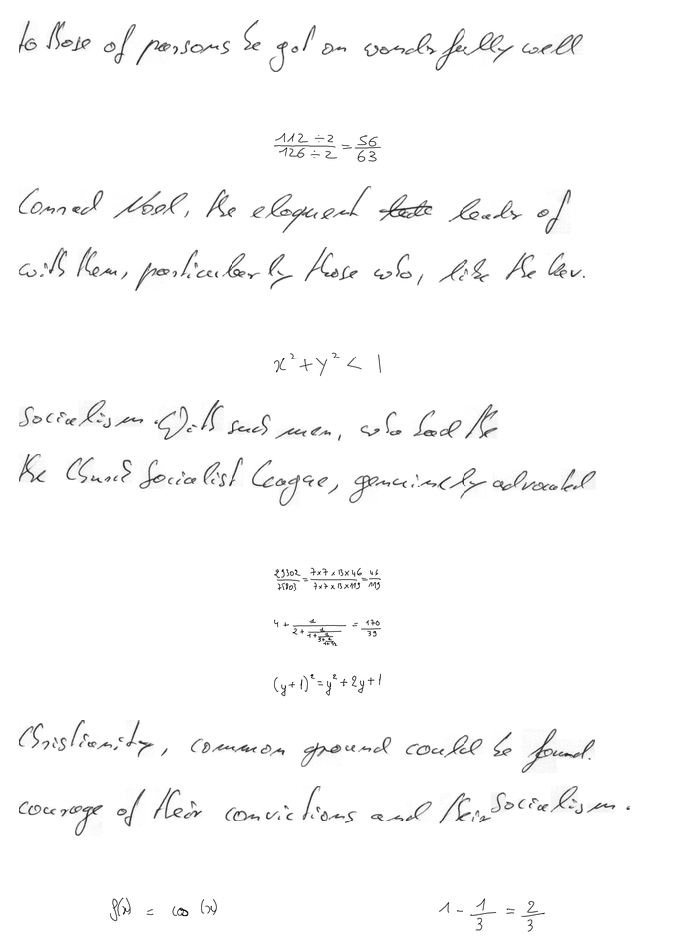 to those of parsons he got on wonderfully well
\frac{112 ÷ 2}{126 ÷ 2} = \frac{56}{63}
Conrad Noel, the eloquent leader of
with them, particularly those who, like the Rev.
x² + y² < 1
Socialism. With such men, who had the
the Church Socialist League, genuinely advocated
\frac{29302}{75803} = \frac{7×7×13×46}{7×7×13×119} = \frac{46}{119}
4 + \frac{1}{2 + \frac{1}{1 +}} = \frac{170}{39}
(y+1)² = y² + 2y + 1
Christianity, common ground could be found.
courage of their convictions and their Socialism.
f(x) = cos (x) 1 - \frac{1}{3} = \frac{2}{3}